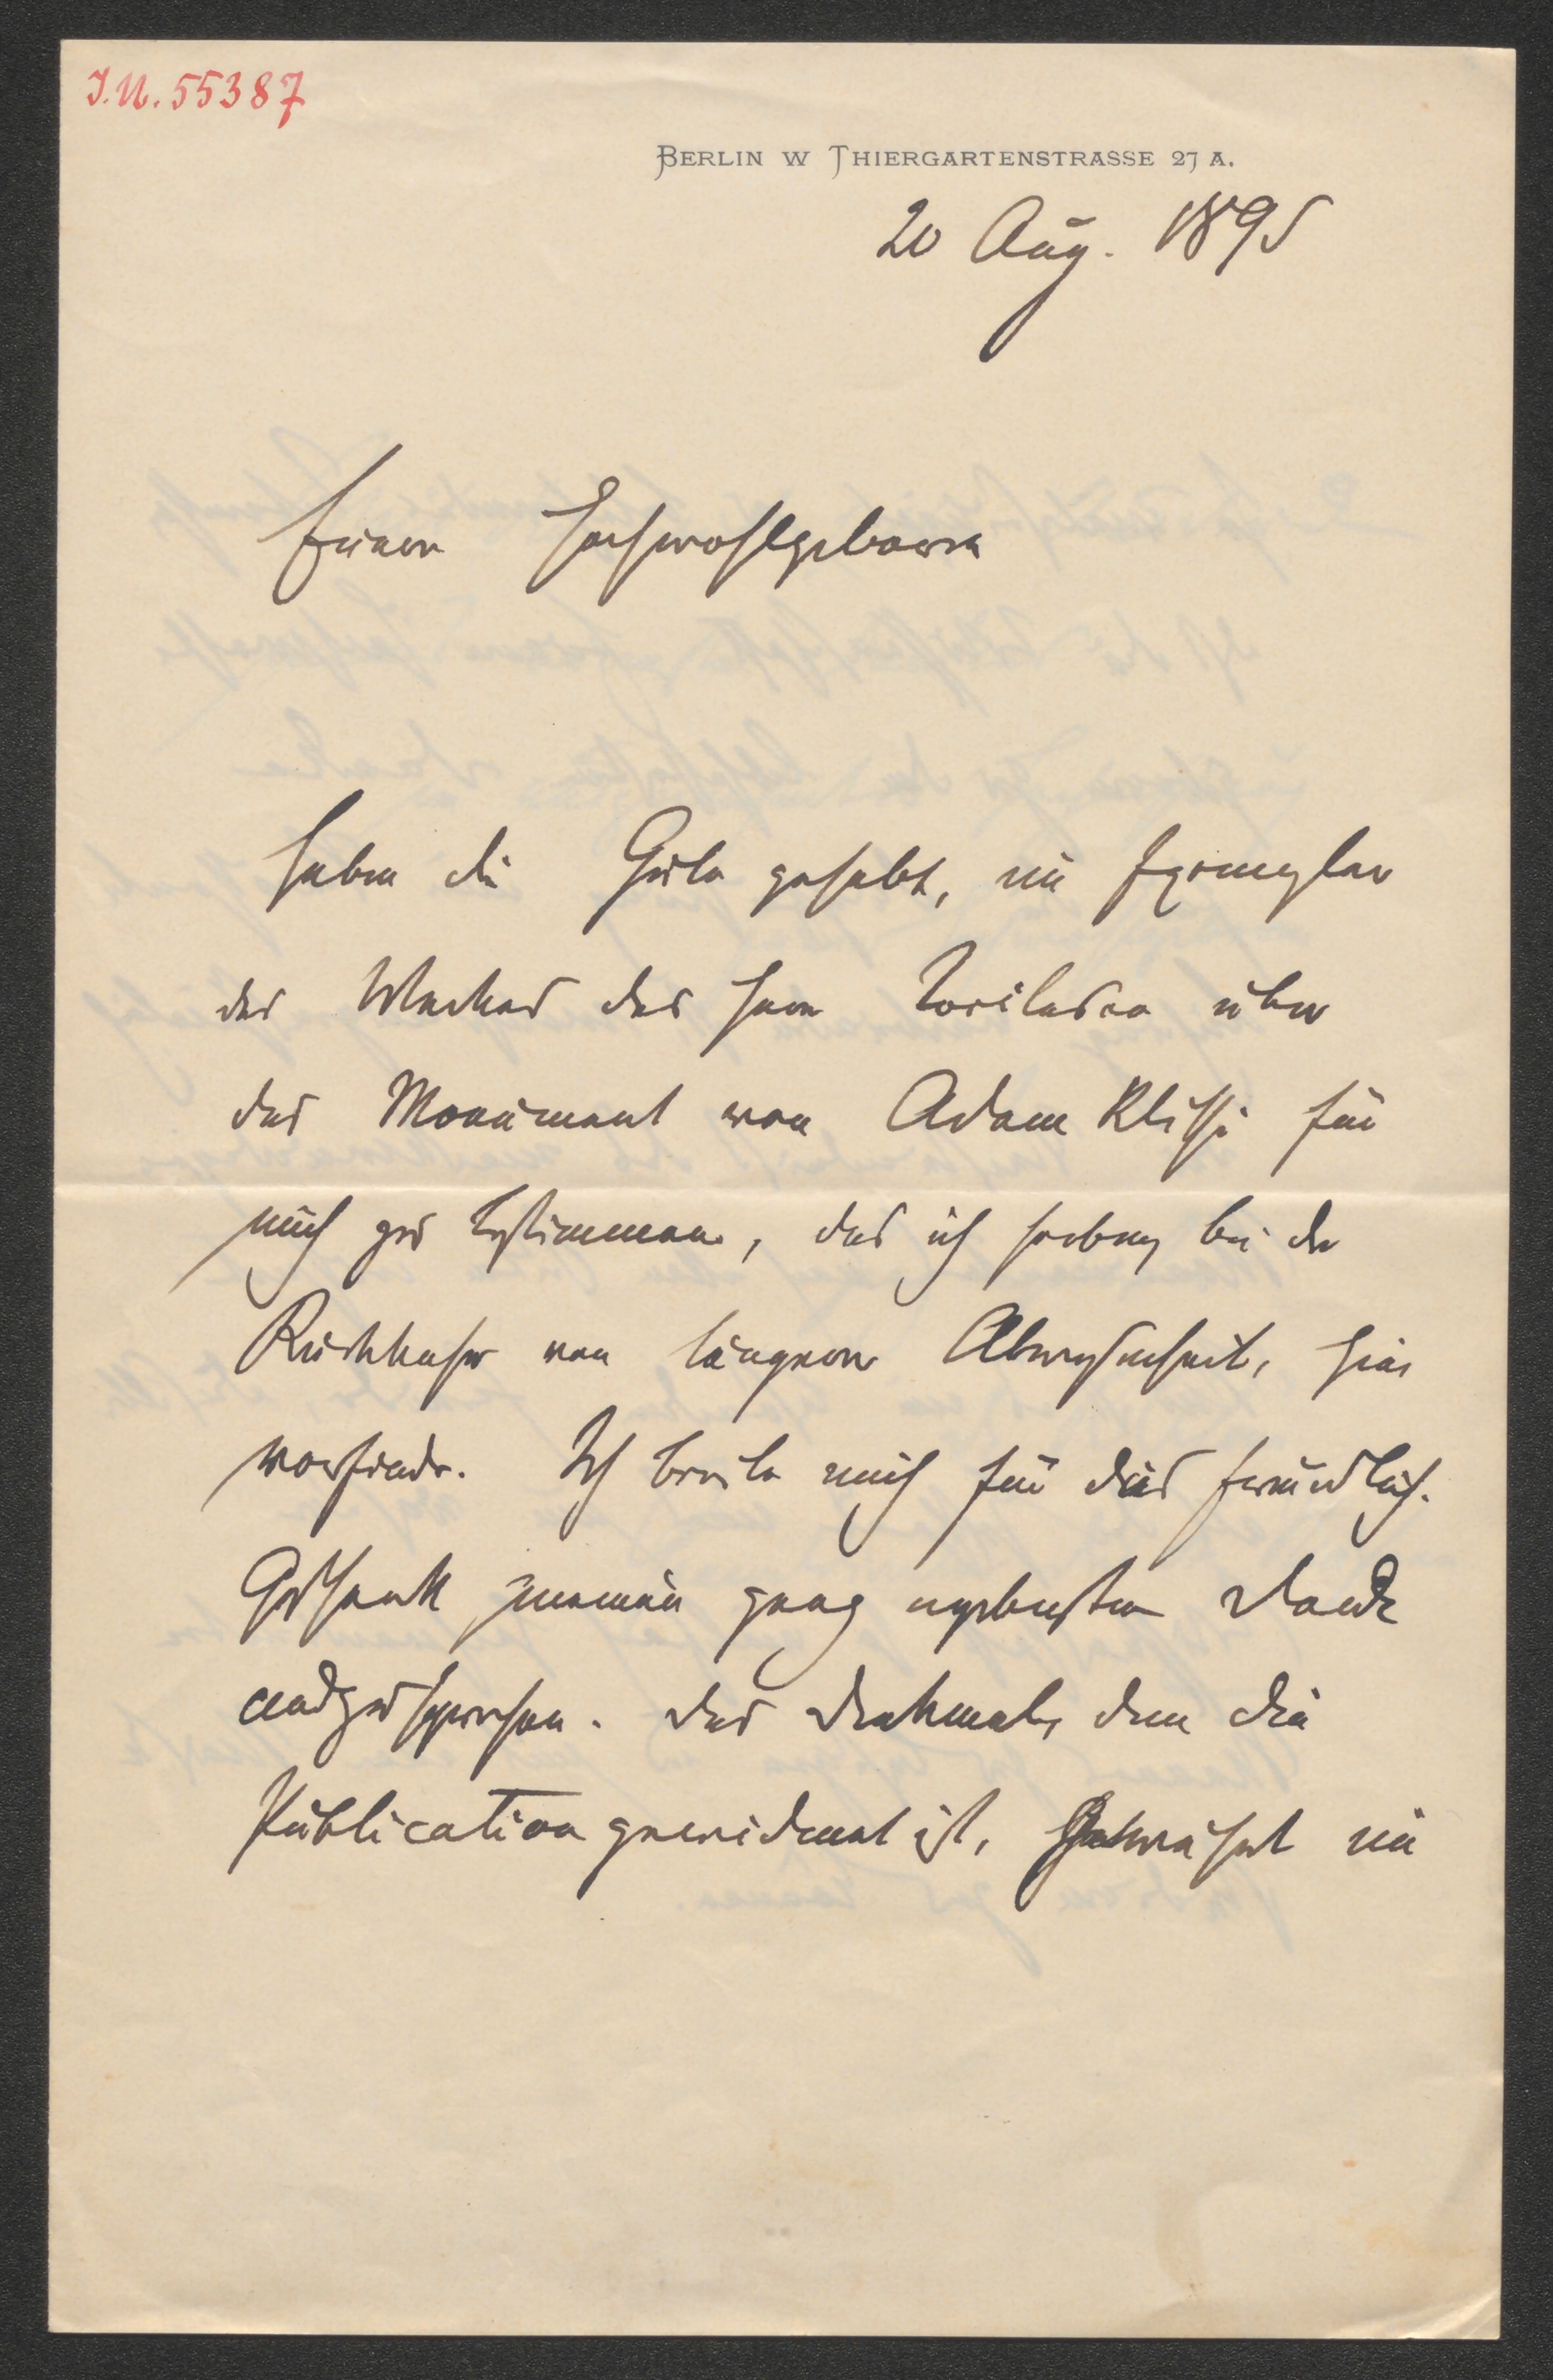 J.N. 55387
BERLIN W THIERGARTENSTRASSE 27 A.
20 Aug. 1895
Euer Hochwohlgeboren
haben die Güte gehabt, ein Exemplar
des Werkes des Herrn Tocilesco über
das Monument von Adam Klissi für
mich zu bestimmen, das ich soeben, bei der
Rückkehr von längerer Abwesenheit, hier
vorfinde. Ich beeile mich für dies freundlich.
Geschenk meinen ganz ergebensten Dank
auszusprechen. Das Denkmal, dem die
Publication gewidmet ist, gewährt ein